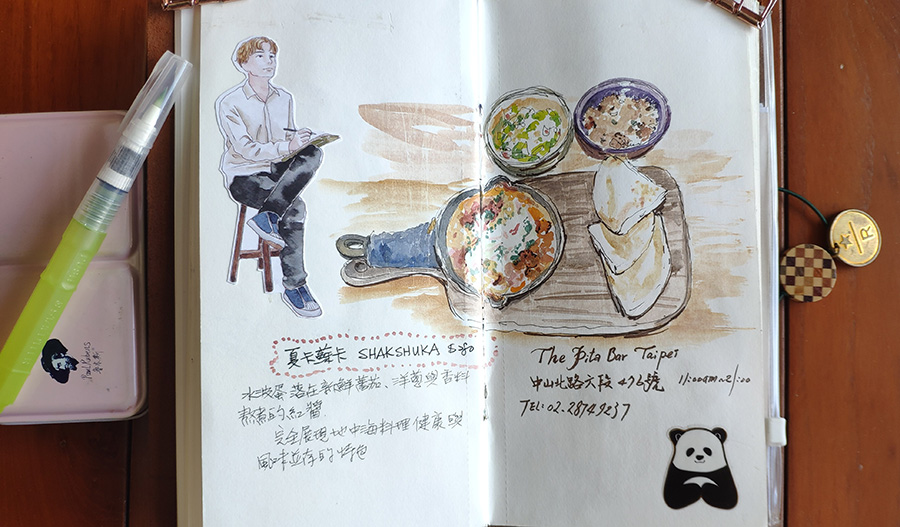 夏卡蘇卡 SHAKSHUKA $280
水波蛋落在新鮮蕃茄、洋蔥與香料
熬煮的紅醬
完全展現地中海料理健康與
風味並存的特色
The Pita Bar Taipei
中山北路六段 496號 11:00am~21:00
TEL: 02.28749237
R